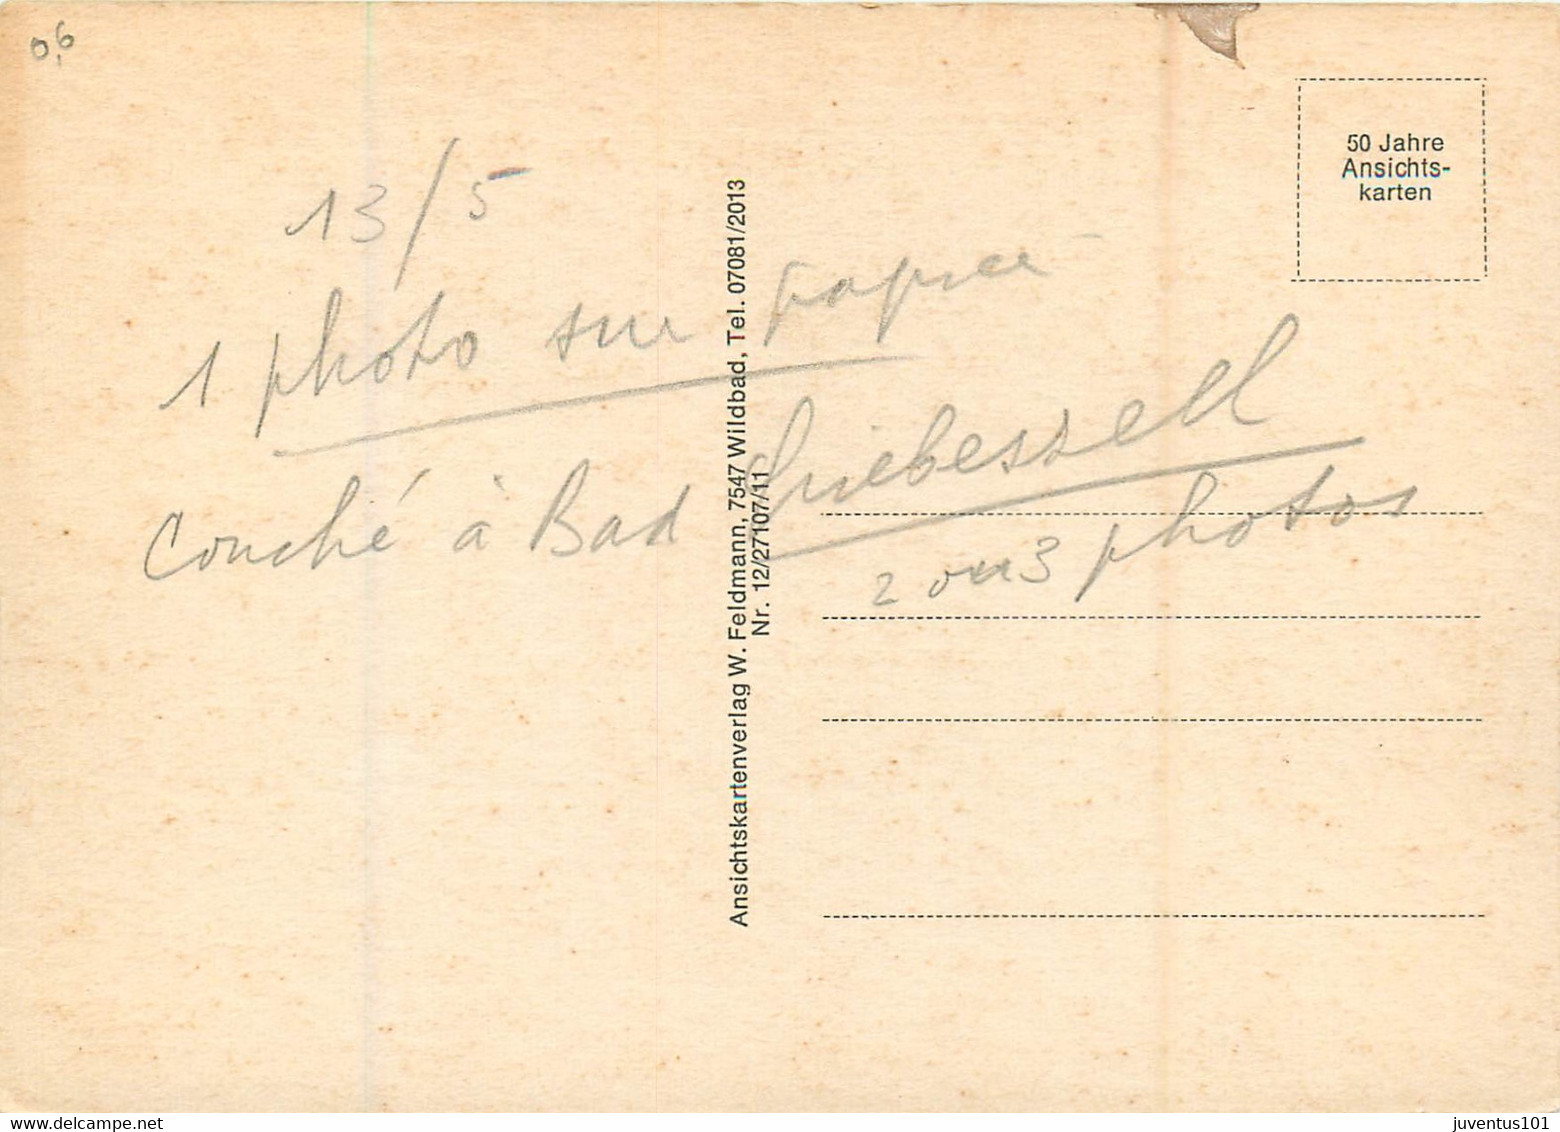 0,6
50 Jahre
Ansichts-
karten
13/5
1 photo sur papier
Couché à Bad Griebessell
2 ou 3 photos
Ansichtskartenverlag W. Feldmann, 7547 Wildbad, Tel. 07081/2013
Nr. 12/27107/11
juventus101